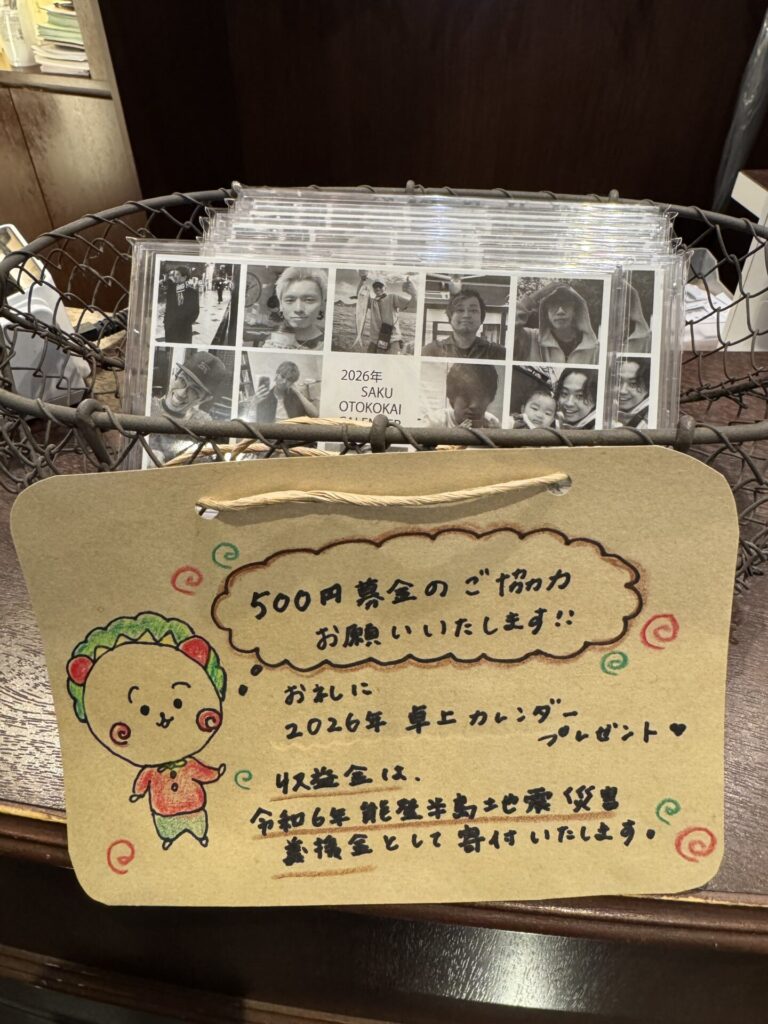 2026年
SAKU
OTOKOKAI
CALENDER
500円募金のご協力
お願いいたします!!
お礼に
2026年 卓上カレンダー
プレゼント♥
収益金は、
令和6年能登半島地震災害
義援金として寄付いたします。